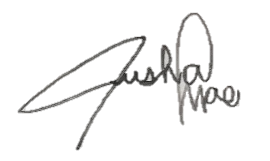 Jusha
Mae